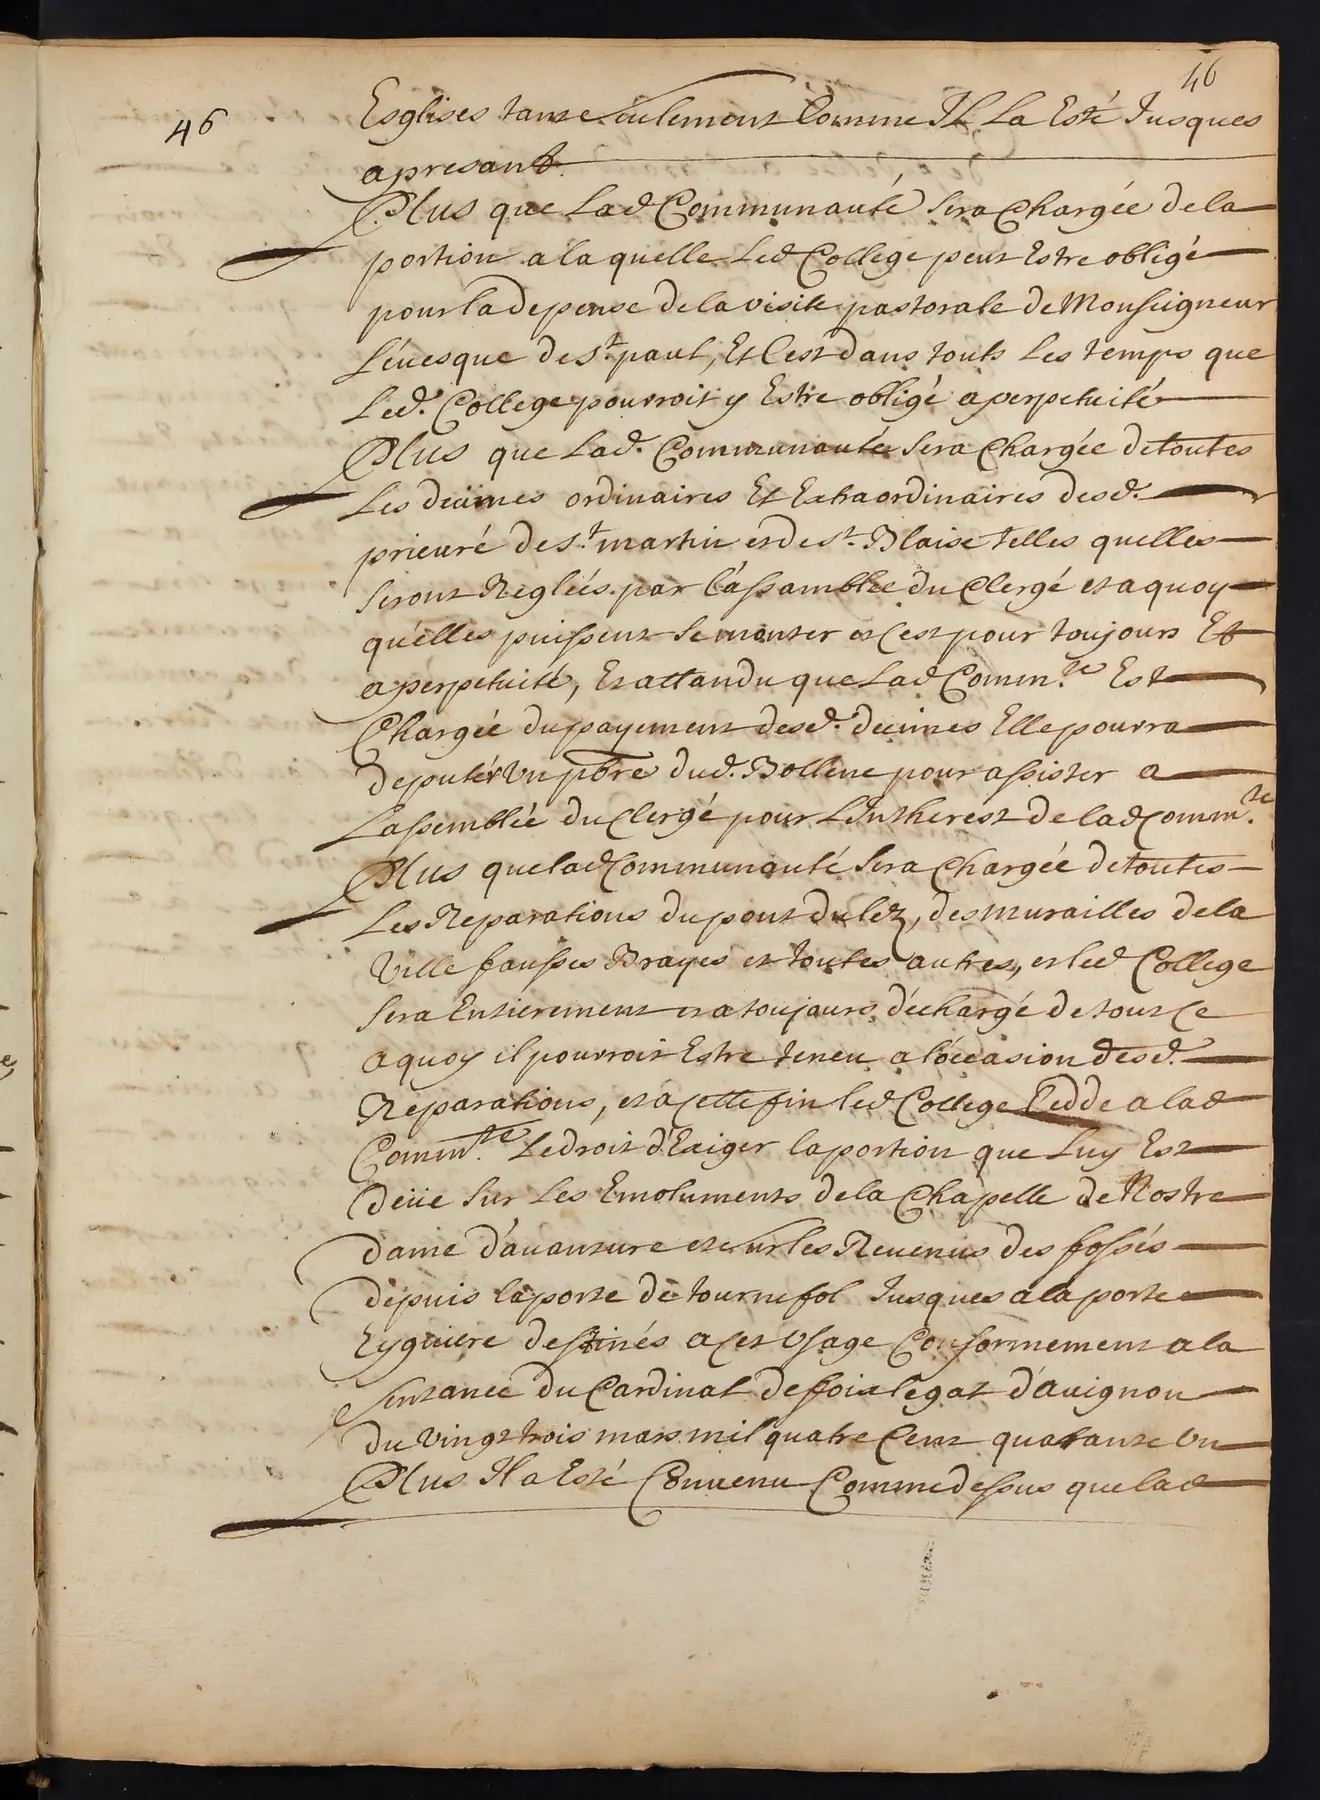 46
46
Esglises tant seulement Comme Il La Esté Jusques
apresant.
Plus que Lad Communauté sera Chargée de la
portion a la quelle Led College peut Estre obligé
pour la depense de la visite pastorale de Monseigneur
Lévesque de st. paul, Et C'est dans touts Les temps que
Led. College pourroit y Estre obligé a perpetuité
Plus que Lad. Communauté sera Chargée de toutes
Les deümes ordinaires Et Extraordinaires desd.
prieuré de st. martin et de st. Blaise telles quelles
seront Reglées par l'assamblée du Clergé et a quoy
qu'elles puissent se monter et C'est pour toujours Et
a perpetuité, Et attandu que Lad Comm.te Est
Chargée du payement desd. decimes Elle pourra
deputér Un pbre dud. Bollene pour assister a
Lassemblée du Clergé pour L'Intherest de lad Comm.te
Plus que lad Communauté sera Chargée de toutes
Les Reparations du pont du lez, des murailles de la
Ville fausses Brayes et toutes autres, et led College
sera Entierement et a toujours déchargé de tout Ce
a quoy il pourroit Estre teneu a l'occasion desd.
Reparations, et a cette fin led College Cedde a lad
Comm.te Le droit d'Exiger la portion que Luy Est
deüe sur Les Emoluments de la Chapelle de Nostre
dame d'avanture et sur les Revenus des fossés
depuis la porte de tournefol Jusques a la porte
Eyguiere destinés a Cet Usage Conformement a la
sentance du Cardinal de foix legat d'avignon
du vingt trois mars mil quatre Cent quarante Un
Plus Il a Esté Convenu Comme dessus que lad